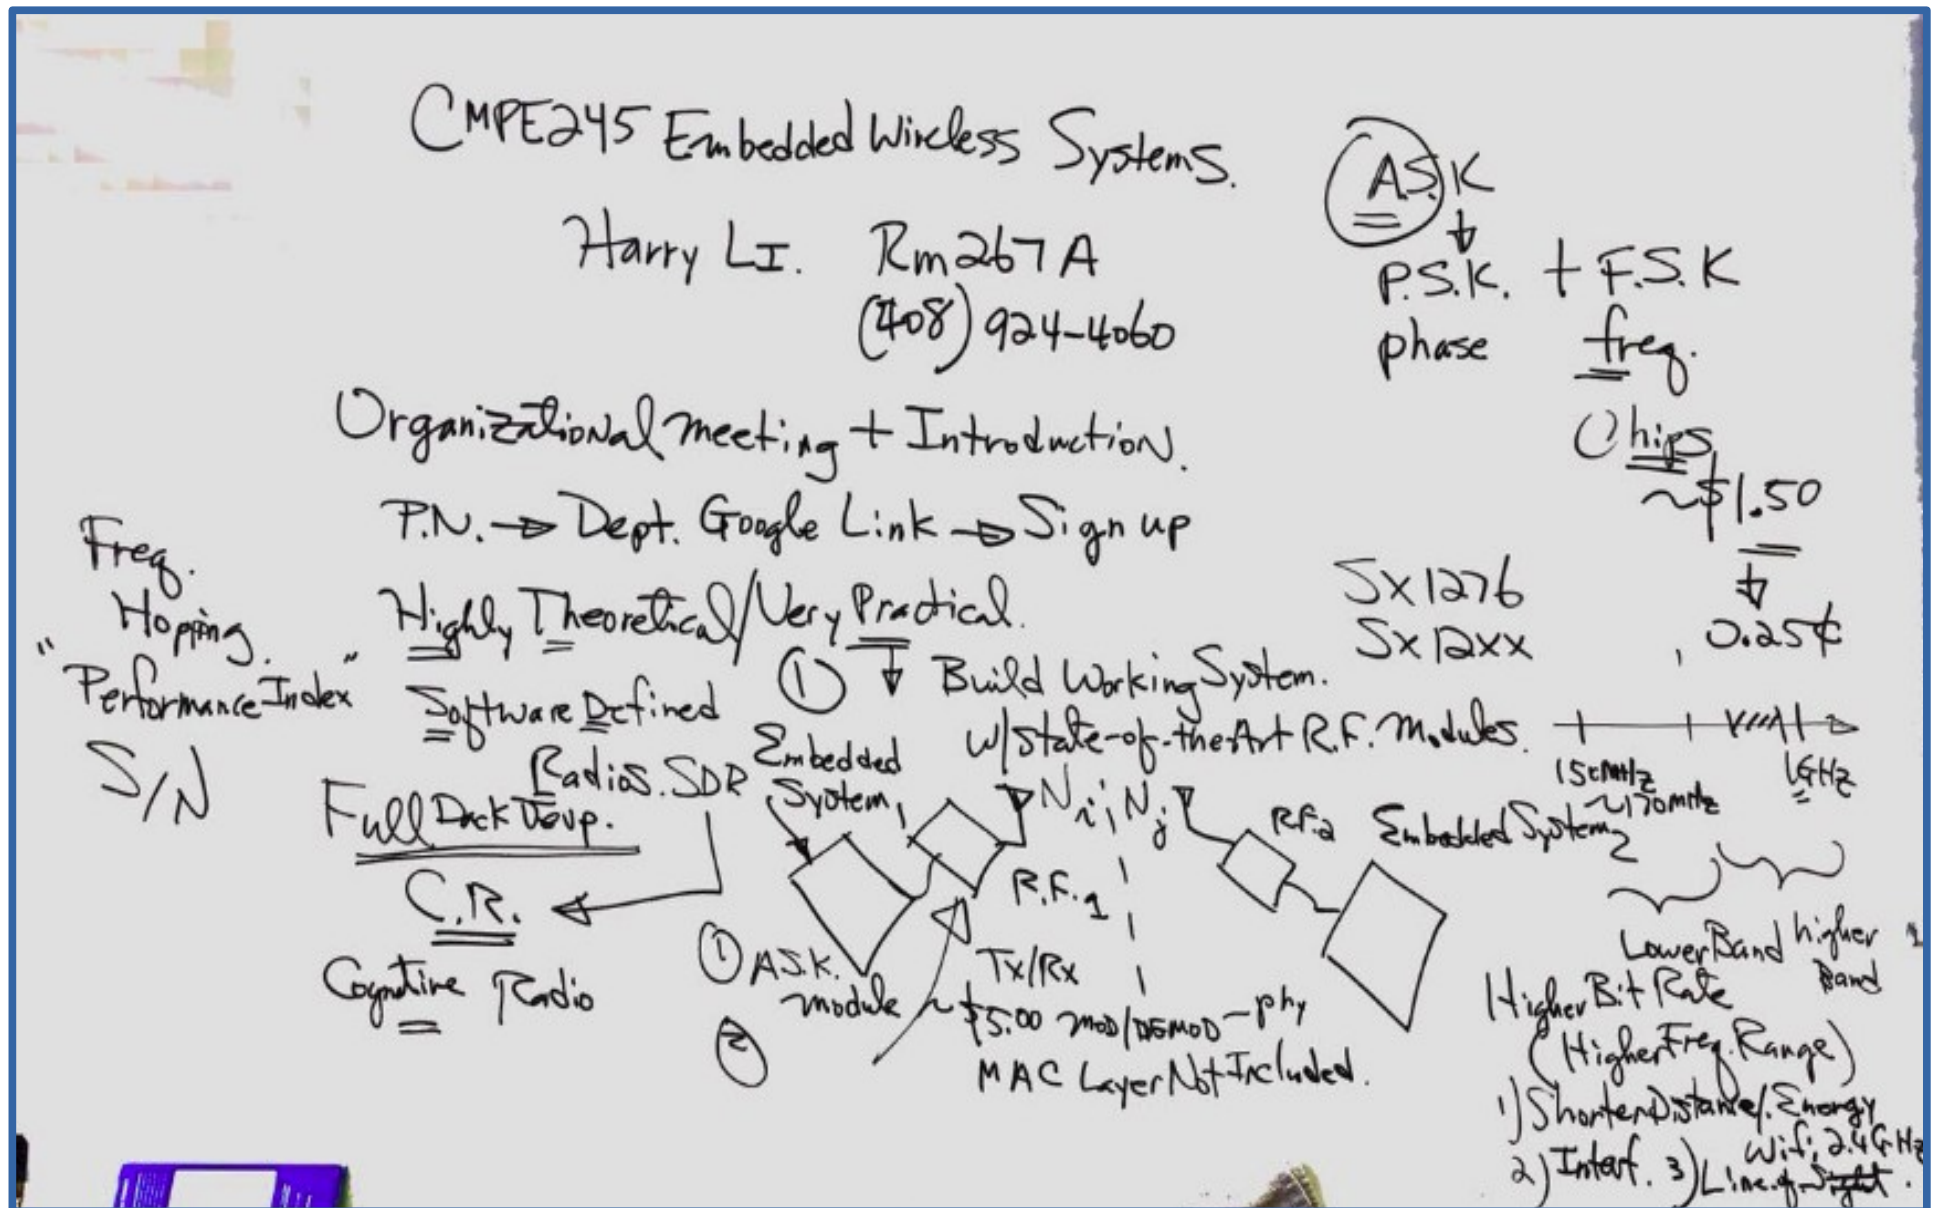 CMPE245 Embedded Wireless Systems.
Harry LI. Rm267A
(408) 924-4060
Organizational meeting + Introduction.
P.N. → Dept. Google Link → Sign up
Highly Theoretical/Very Practical.
① ↓ Build Working System.
w/state-of-the-Art R.F. Modules.
Freq.
Hopping.
"Performance Index"
S/N
Software Defined
Radios. SDR
Full
C.R.
Cognitive Radio
Embedded
System 1
Ni, Nj
R.F.1
R.F.2
Embedded System 2
① A.S.K.
module ~ $5.00
②
Tx/Rx
MOD/DEMOD - phy
MAC Layer Not Included.
A.S.K
↓
P.S.K. + F.S.K
phase freq.
Chips
~$1.50
↓
0.25¢
SX1276
SX12xx
150MHz
~170MHz
1GHz
Lower Band higher
Band
Higher Bit Rate
(Higher Freq. Range)
1) Shorter Distance/. Energy
Wifi, 2.4GHz
2) Interf. 3) Line-of-Sight.